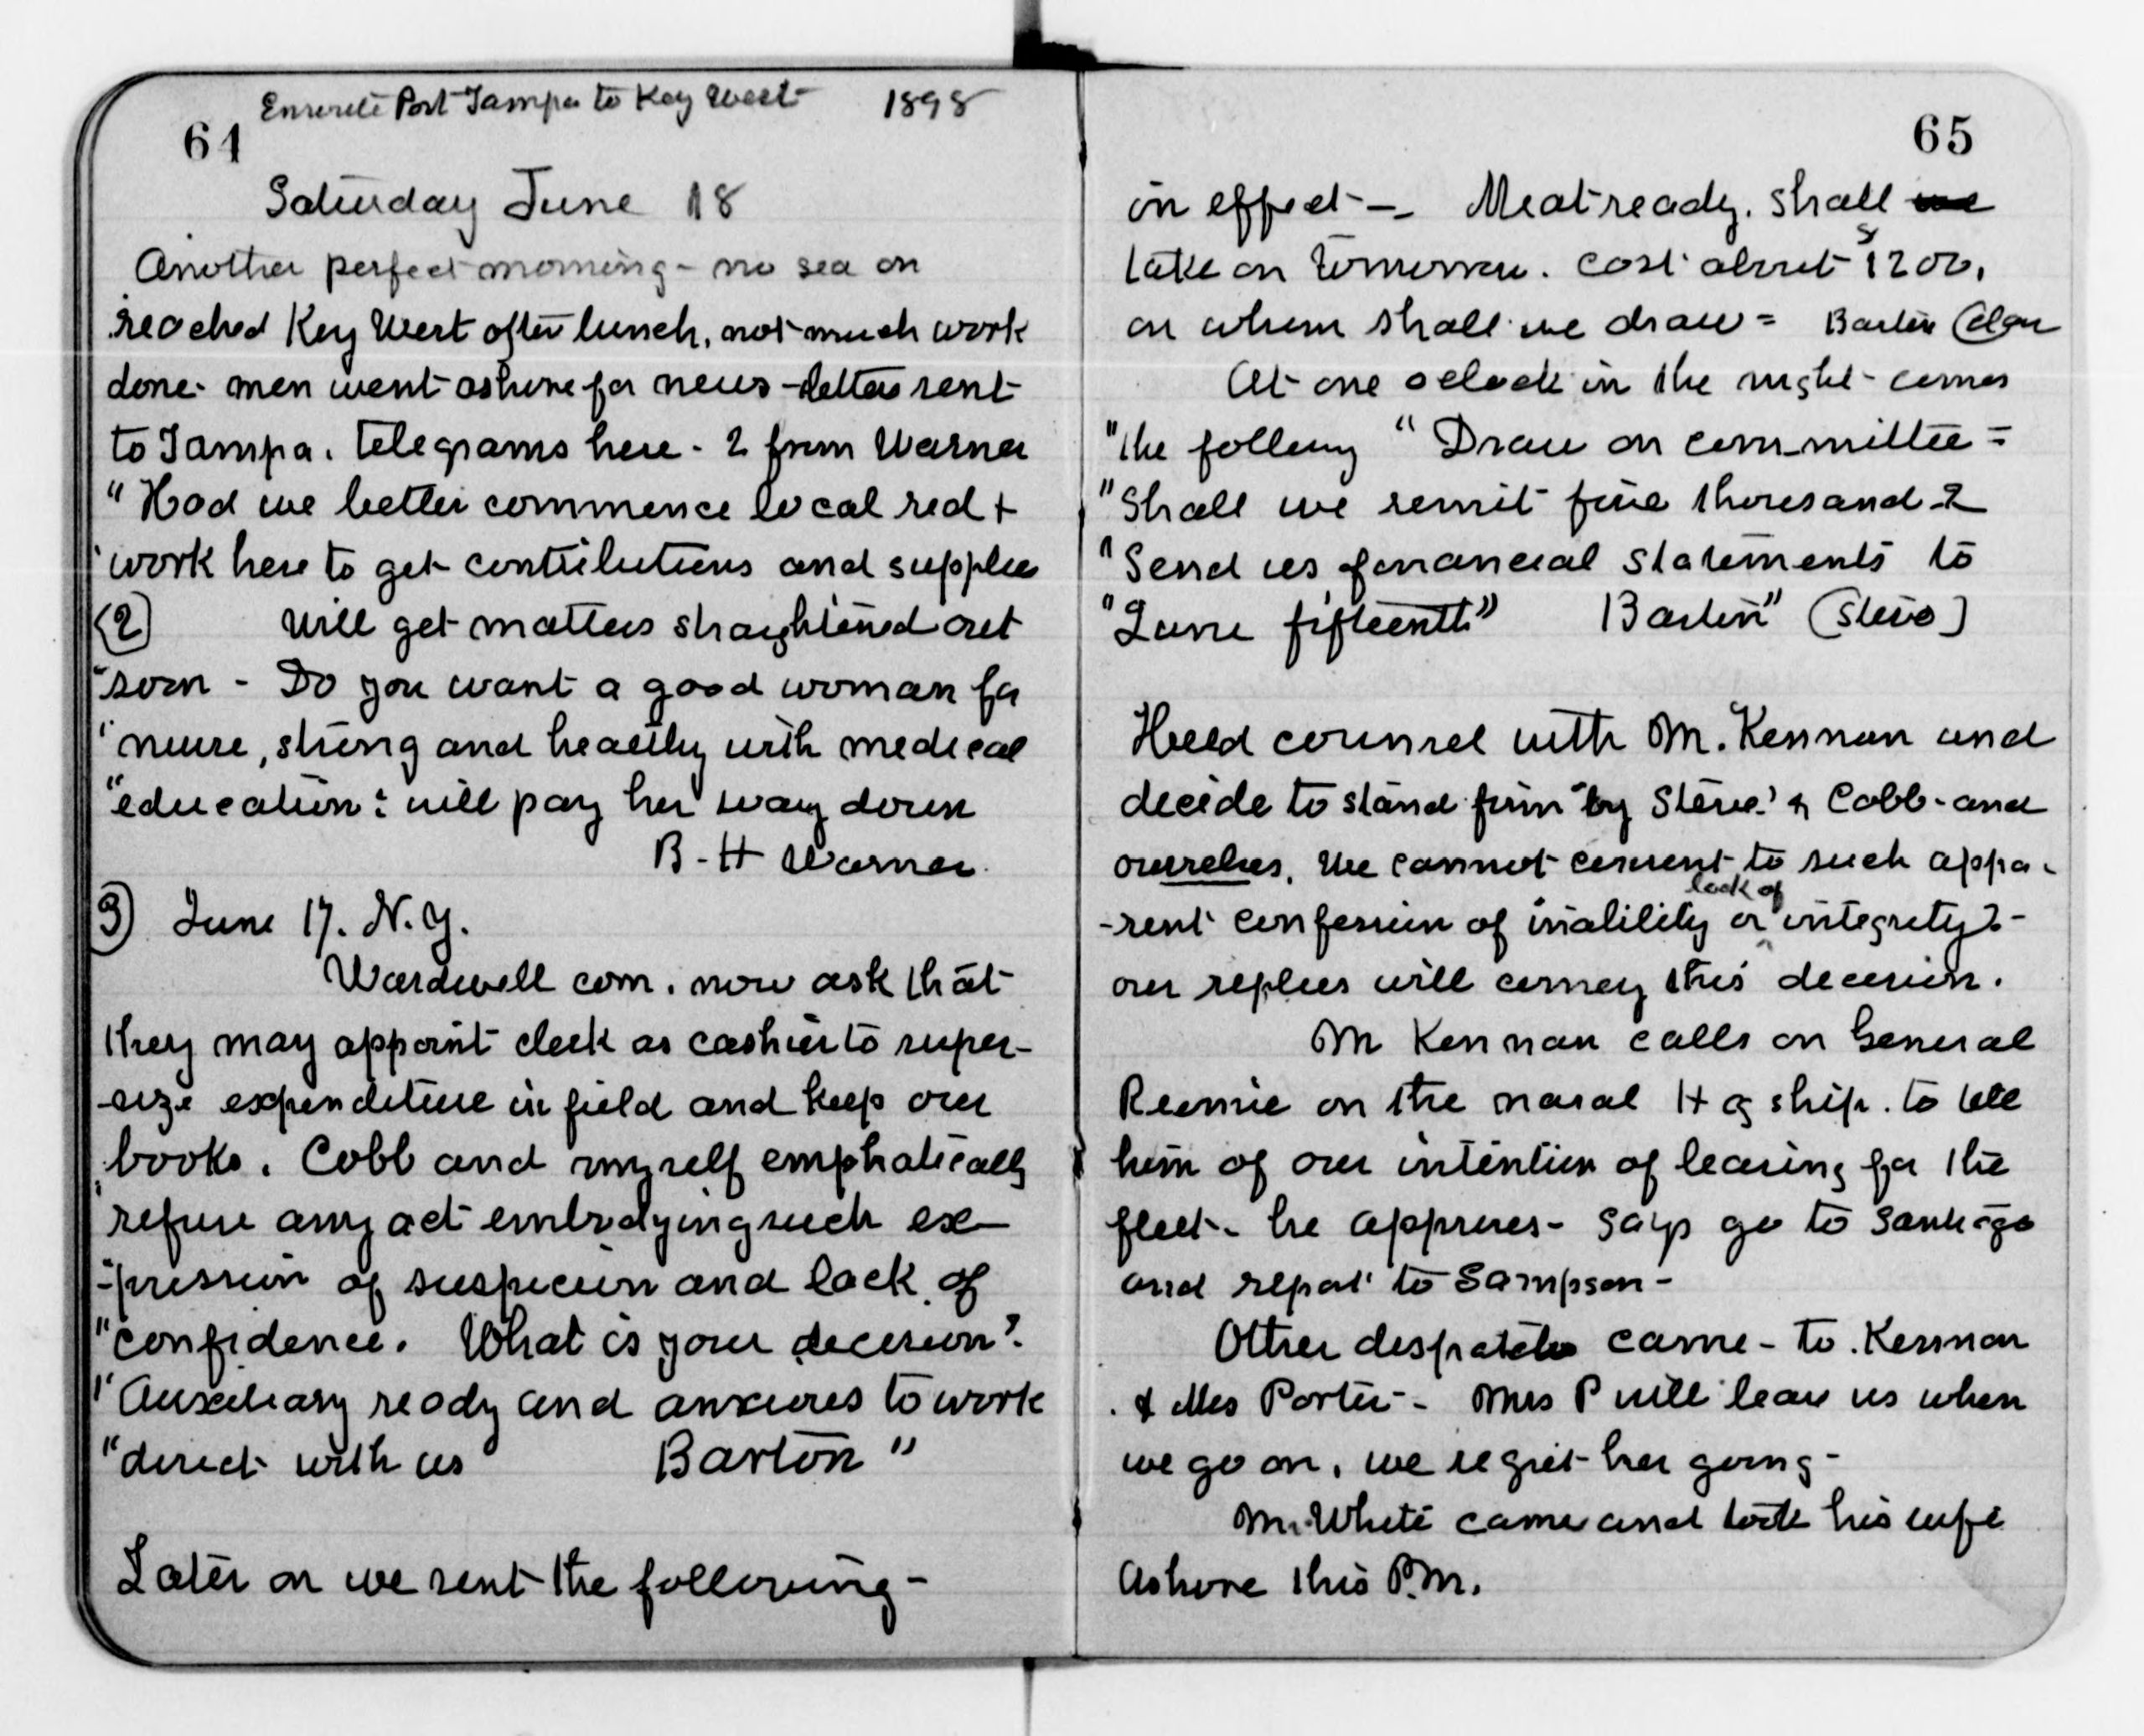 Enroute Port Tampa to Key West 1898
64
Saturday June 18
Another perfect morning - no sea on
reached Key West after lunch, not much work
done - men went ashore for news - letters sent
to Tampa. telegrams here - 2 from Warner
" Had we better commence local red +
" work here to get contributions and supplies
(2) Will get matters straightened out
" soon - Do you want a good woman for
" nurse, strong and healthy with medical
" education: will pay her way down
B-H Warner.
3) June 17. N.Y.
Wardwell com. now ask that
they may appoint clerk as cashier to super-
-vize expenditure in field and keep our
books. Cobb and myself emphatically
" refuse any act embodying such ex-
-pression of suspicion and lack of
" confidence. What is your decision?
" Auxiliary ready and anxious to work
" direct with us Barton "
Later on we sent the following -
65
in effect - Meat ready. shall we
take on tomorrow. cost about $1200.
on whom shall we draw = Barton Clara
At one oclock in the night - comes
" the follwng " Draw on com-mittee =
" Shall we remit five thousand - ?
" Send us financial statements to
" June fifteenth" Barton" (Steve)
Held counsel with Mr. Kennan and
decide to stand firm by Steve. & Cobb - and
ourselves. We cannot consent to such appa-
-rent confession of inability or lack of integrity? -
our replies will convey this decision.
Mr Kennan calls on General
Remie on the naval Hq ship. to tell
him of our intention of leaving for the
fleet - he approves - says go to Santiago
and report to Sampson -
Other despatches came - to Kennan
& Mrs Porter - Mrs P will leave us when
we go on, we regret her going -
Mr. White came and took his wife
ashore this P.M.